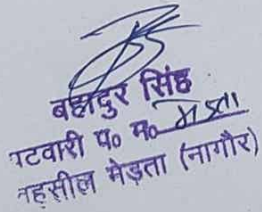 बहादुर सिंह
पटवारी प० म० मेड़ता
तहसील मेड़ता (नागौर)